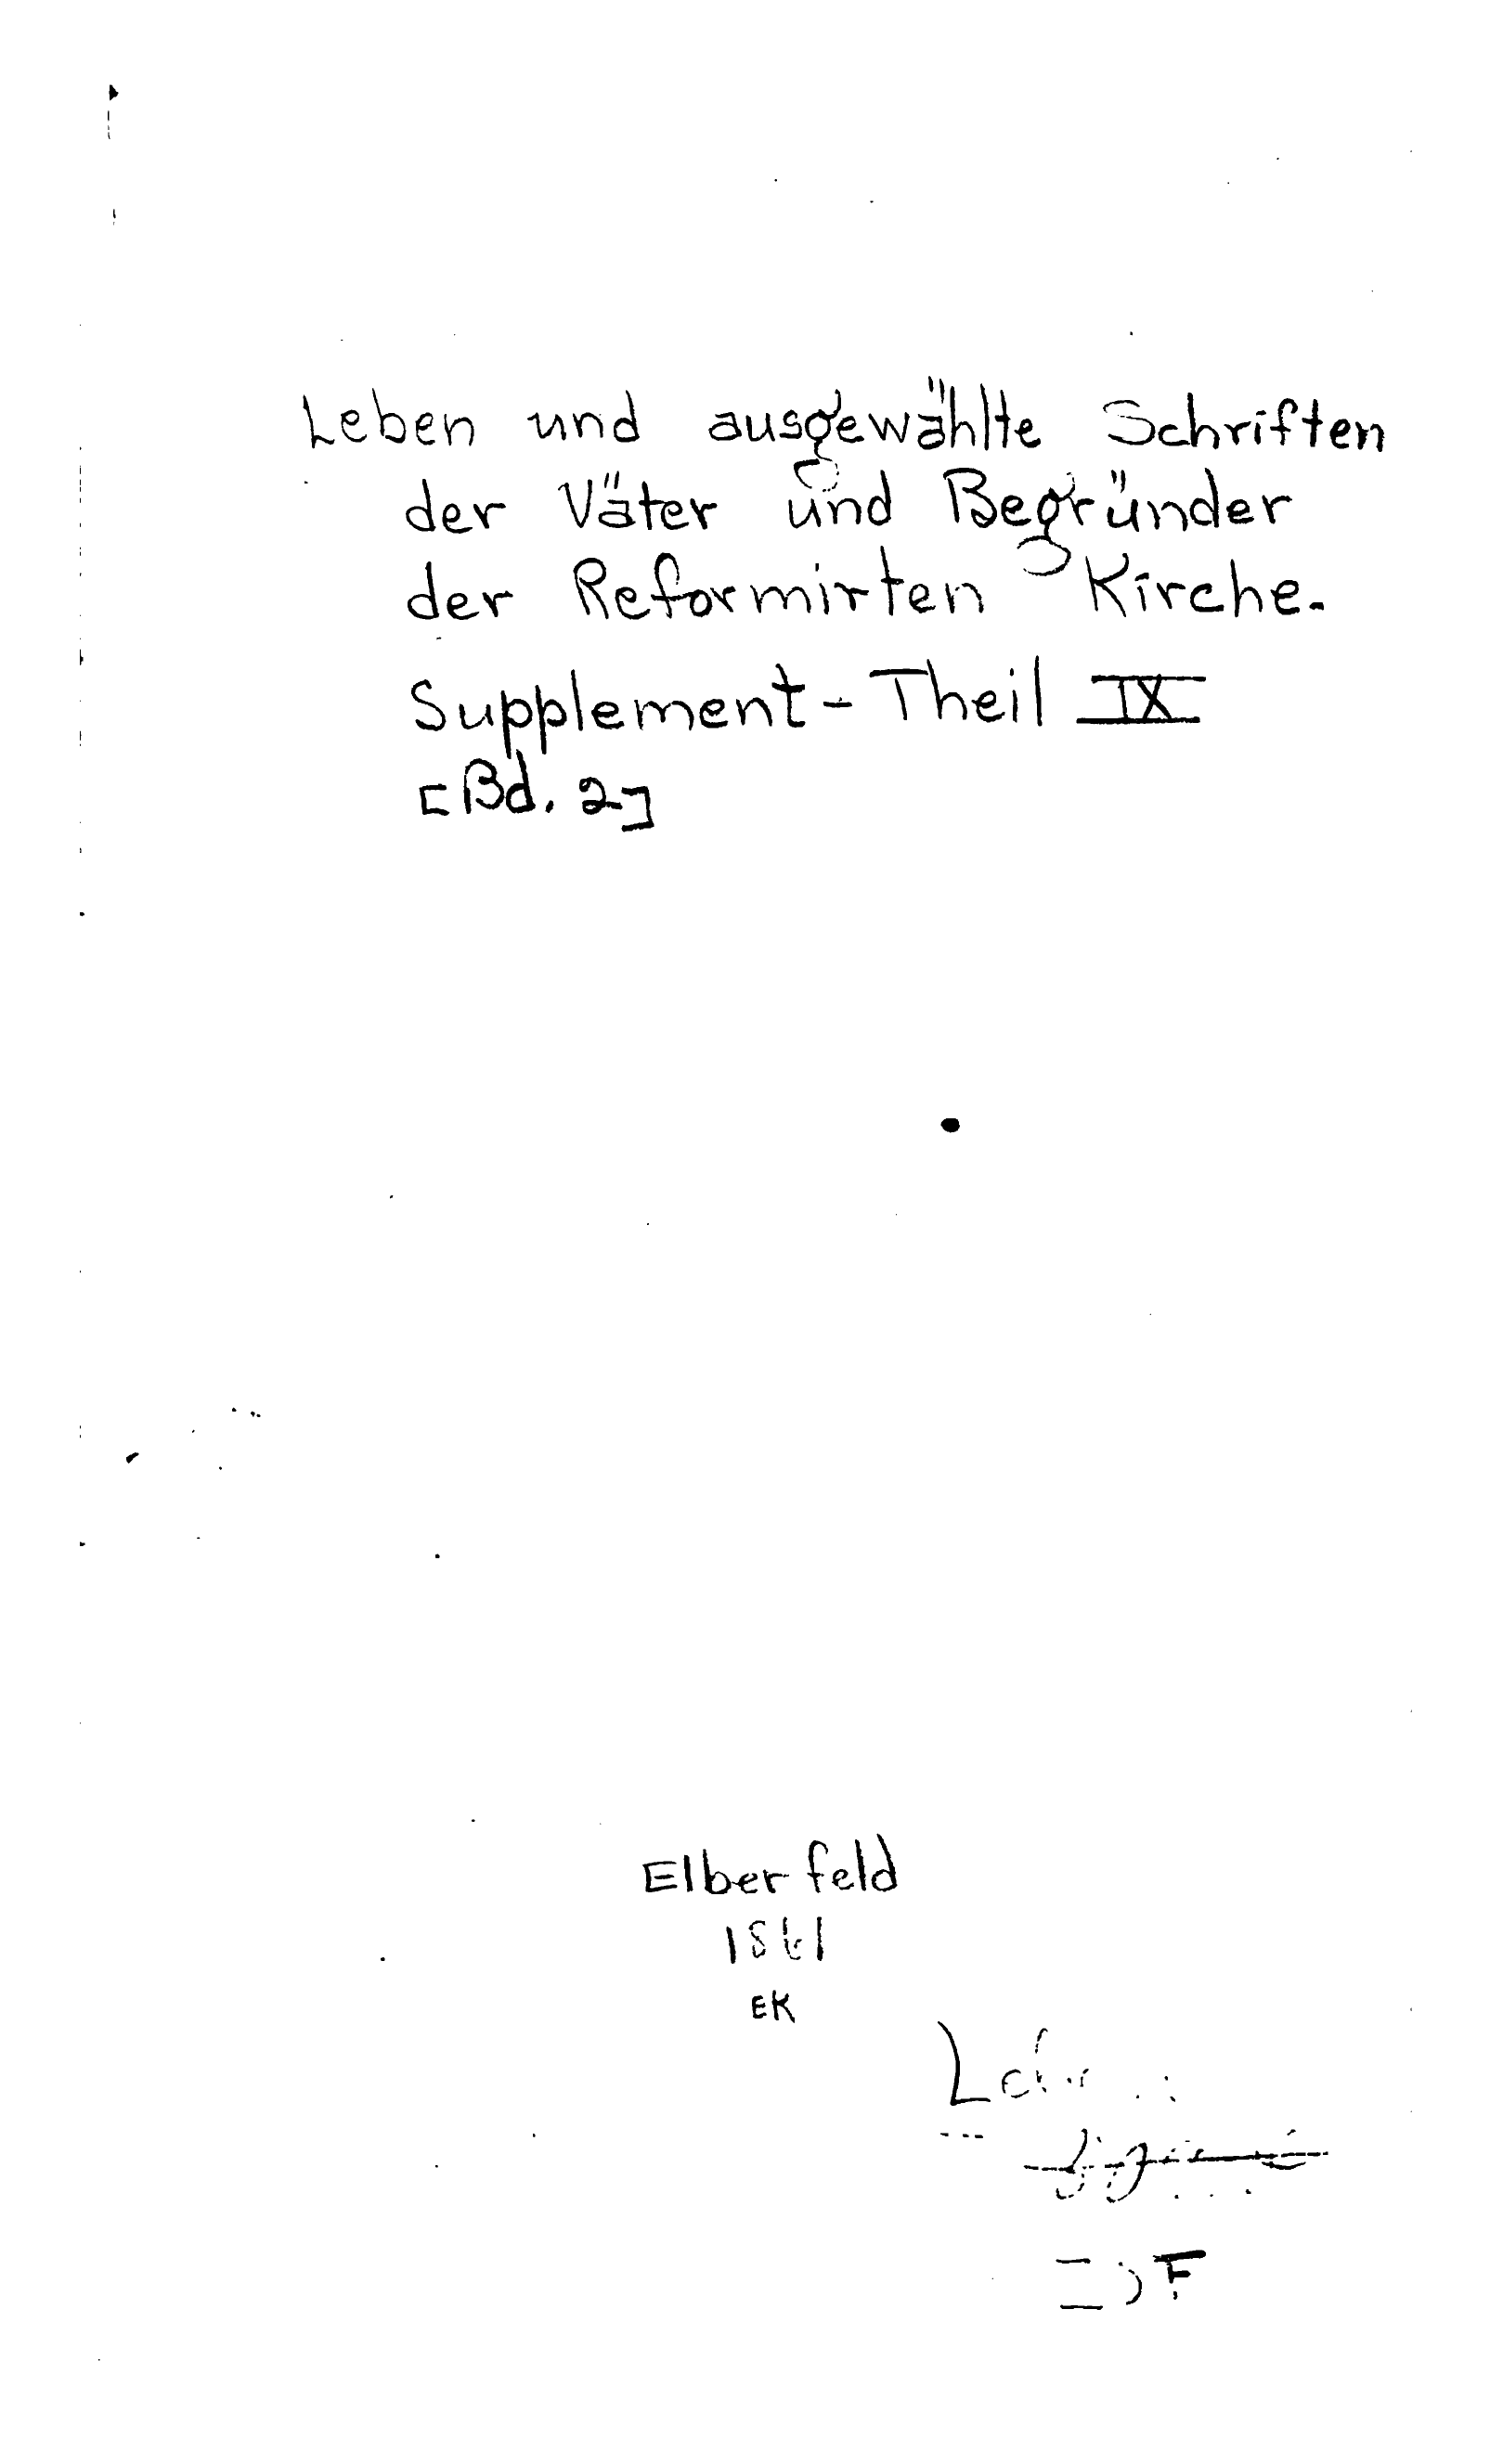 Leben und ausgewählte Schriften
der Väter und Begründer
der Reformirten Kirche.
Supplement-Theil IX
[Bd. 2]
Elberfeld
1861
EK